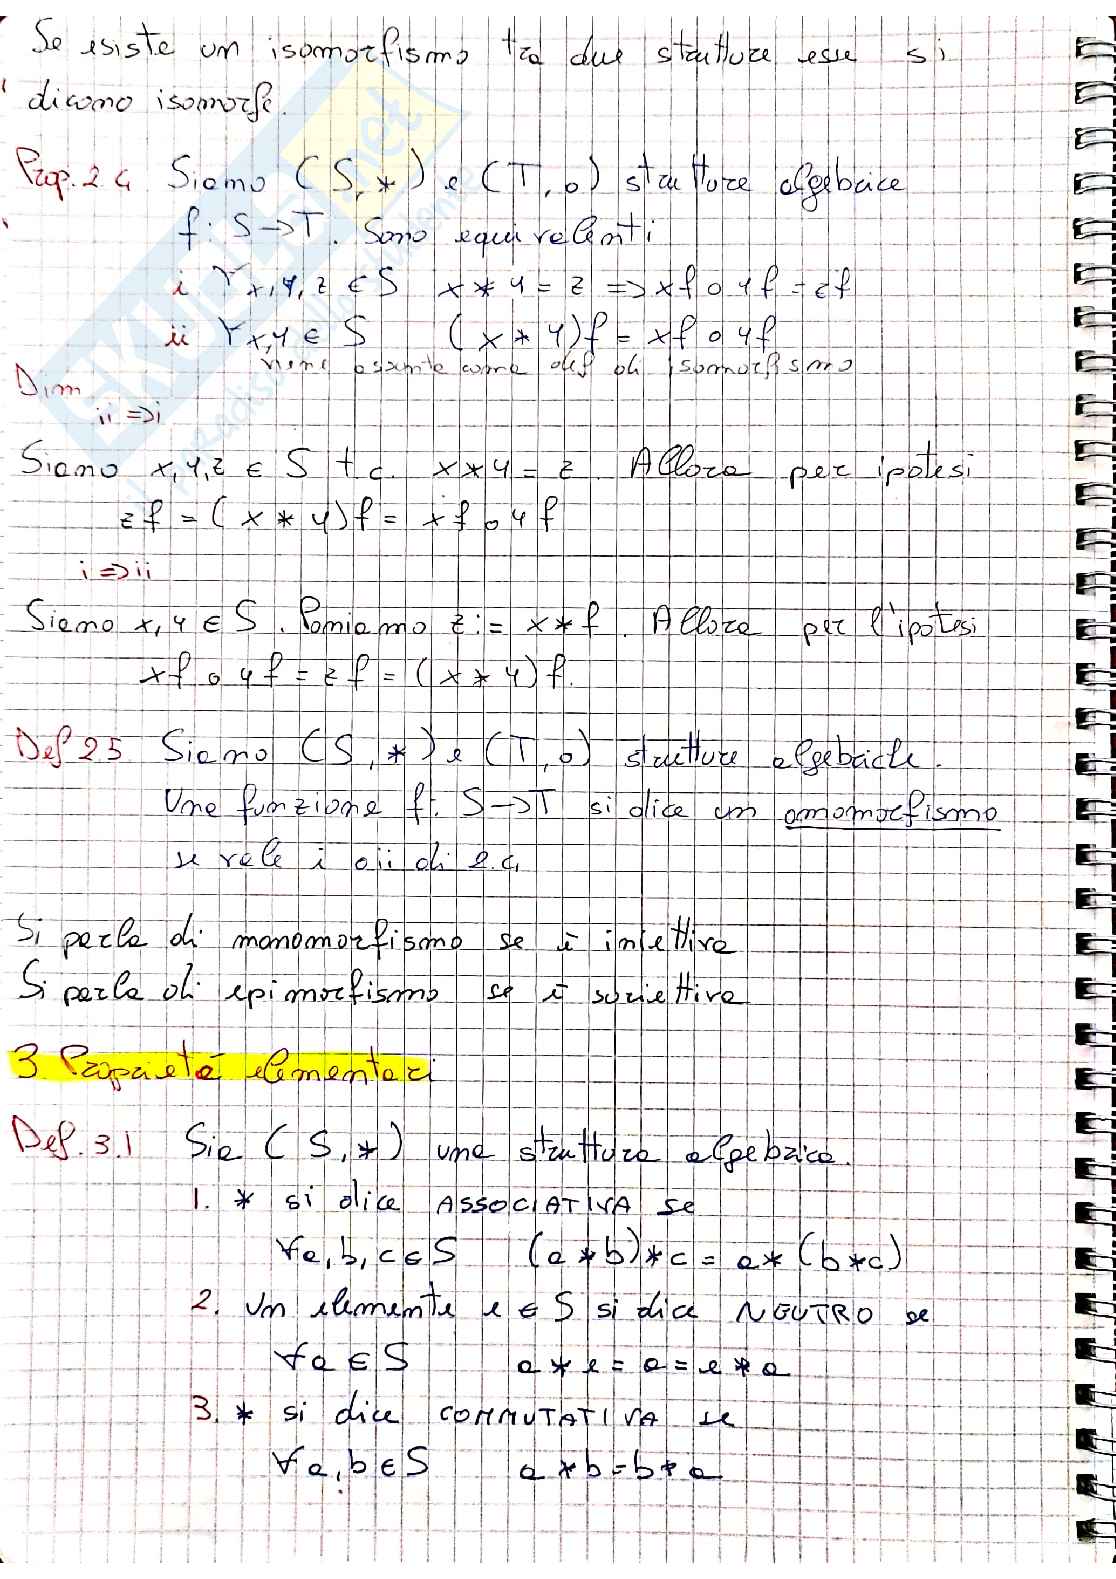 Se esiste un isomorfismo tra due strutture esse si
dicono isomorfe.
Prop. 2.4 Siano (S, *) e (T, o) strutture algebrice
f: S → T. Sono equivalenti
i ∀x, y, z ∈ S x * y = z => xf o yf = zf
ii ∀x, y ∈ S (x * y)f = xf o yf
viene assunta come def di isomorfismo
Dim
ii => i
Siano x, y, z ∈ S t.c. x * y = z. Allora per ipotesi
zf = (x * y)f = xf o yf
i => ii
Siano x, y ∈ S. Poniamo z := x * f. Allora per l'ipotesi
xf o yf = zf = (x * y)f.
Def 2.5 Siano (S, *) e (T, o) strutture algebriche.
Una funzione f: S → T si dice un omomorfismo
se vale i o ii di 2.4
Si parla di monomorfismo se è iniettiva
Si parla di epimorfismo se è suriettiva
3 Proprietá elementari
Def. 3.1 Sia (S, *) una struttura algebrica.
1. * si dice ASSOCIATIVA se
∀a, b, c ∈ S (a * b) * c = a * (b * c)
2. Un elemento e ∈ S si dice NEUTRO se
∀a ∈ S a * e = a = e * a
3. * si dice COMMUTATIVA se
∀a, b ∈ S a * b = b * a
SKUOLA.net